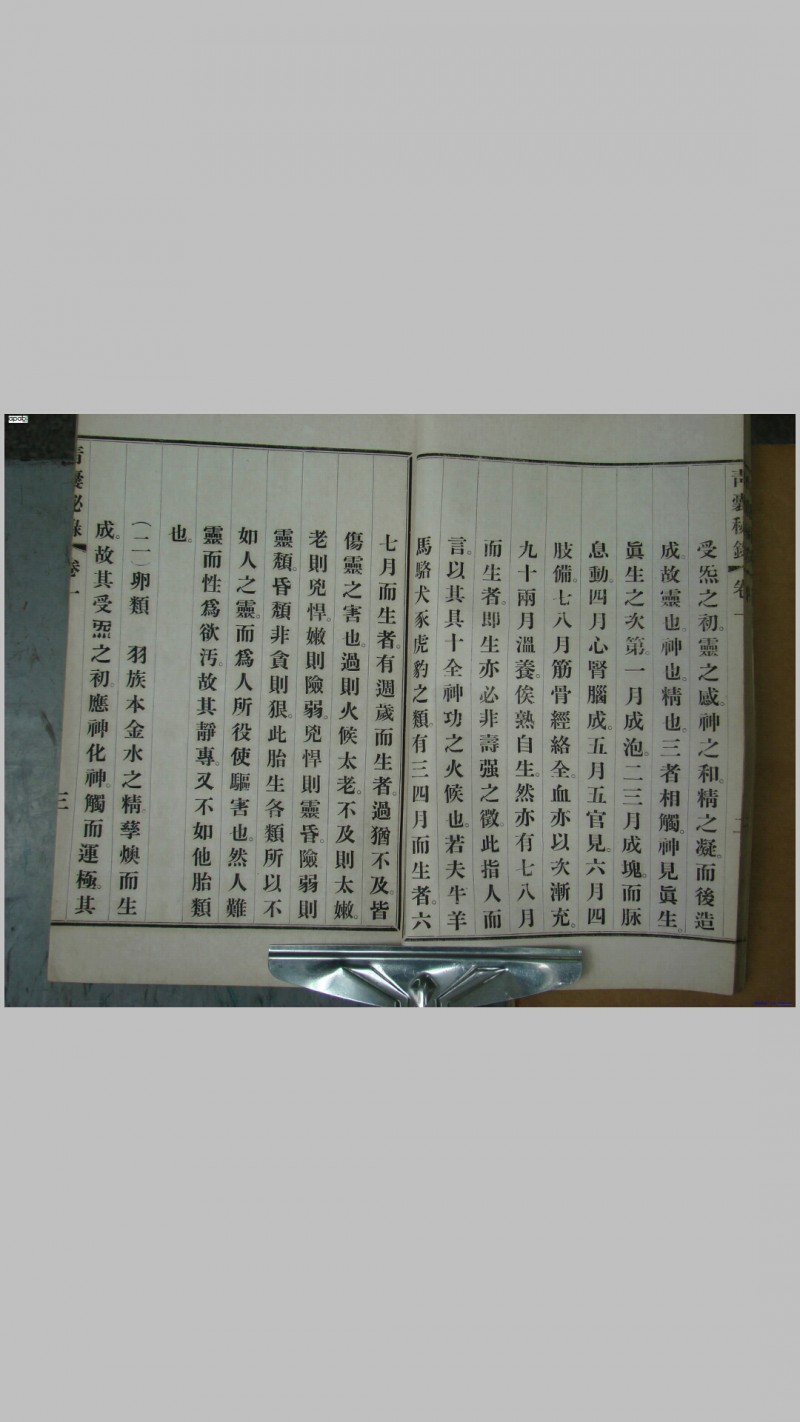 青囊秘錄 卷一
二
受炁之初。靈之感。神之和。精之凝。而後造
成。故靈也。神也。精也。三者相觸。神見眞生。
眞生之次第。一月成泡。二三月成塊。而脈
息動。四月心腎腦成。五月五官見。六月四
肢備。七八月筋骨經絡全。血亦以次漸充。
九十兩月溫養。俟熟自生。然亦有七八月
而生者。即生亦必非壽强之徵。此指人而
言。以其具十全神功之火候也。若夫牛羊
馬駱犬豕虎豹之類。有三四月而生者。六
七月而生者。有週歲而生者。過猶不及。皆
傷靈之害也。過則火候太老。不及則太嫩。
老則兇悍。嫩則險弱。兇悍則靈昏。險弱則
靈頹。昏頹非貪則狠。此胎生各類所以不
如人之靈。而爲人所役使驅害也。然人難
靈而性爲欲汚。故其靜專。又不如他胎類
也。
（二）卵類 羽族本金水之精。孳煥而生
成。故其受炁之初。應神化神。觸而運極。其
青囊秘錄 卷一
三
apabi